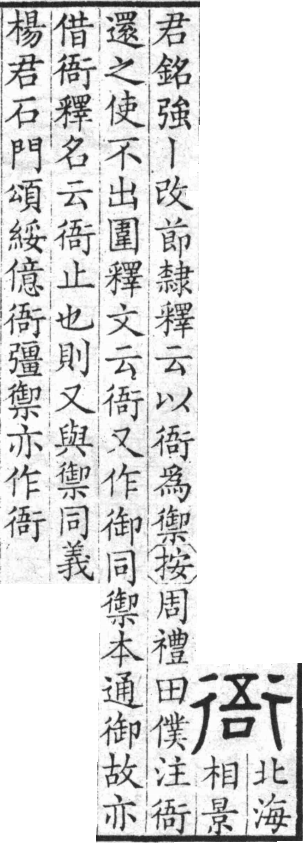 衙
北海
相景
君銘強丨改節隸釋云以衙爲禦按周禮田僕注衙
還之使不出圍釋文云衙又作御同禦本通御故亦
借衙釋名云衙止也則又與禦同義
楊君石門頌綏億衙彊禦亦作衙